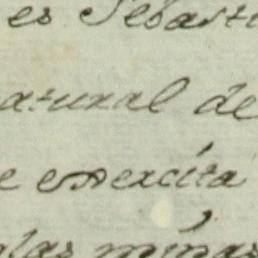 es Sebasti
atural de
e exercita
las minas